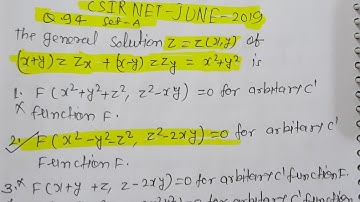 CSIR NET-JUNE-2019
Q 94 Set-A
the general solution Z = Z(x,y) of
(x+y) z Zx + (x-y) z Zy = x²+y² is
1. F(x²+y²+z², z²-xy) = 0 for arbitary C'
x function F.
2. F(x²-y²-z², z²-2xy) = 0 for arbitary C'
✓ Function F.
3.x F(x+y+z, z-2xy) = 0 for arbitary C' function F.
for arbitary C' function